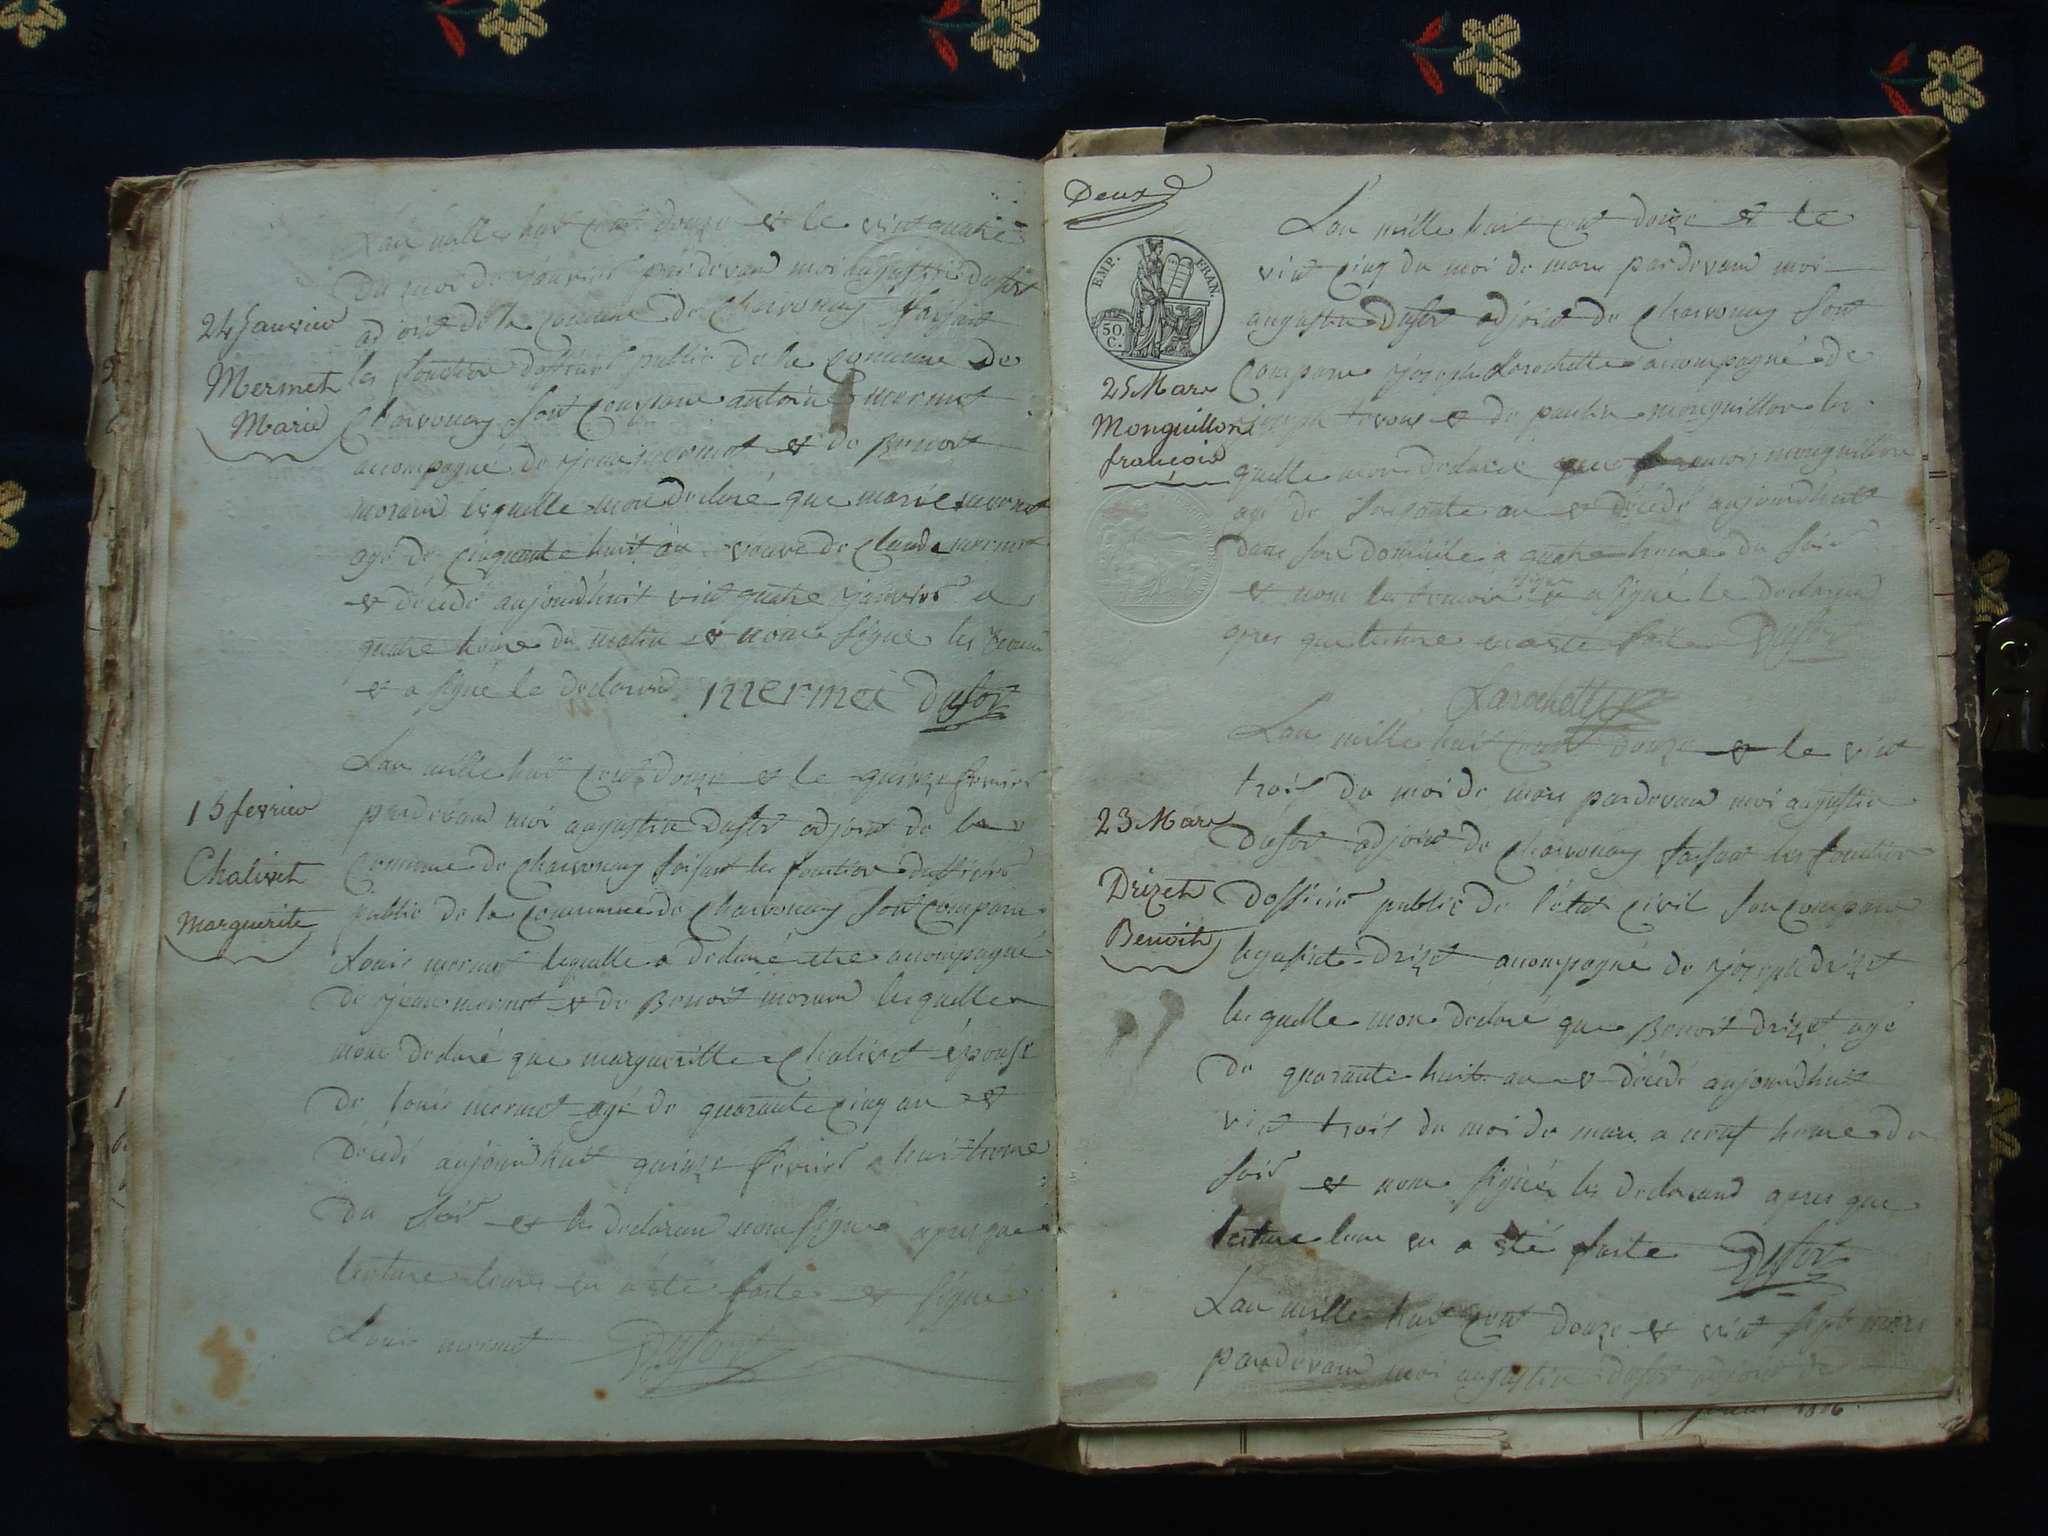 Lan mille huit cent douze et le vint quatre
du moi de janvier pardevand moi augustin Dufor
adjoit de la commune de Charvonay faisant
24 Janvier
Mermet
Marie
les fonction dofficier public de la commune de
Charvonay sont comparu antoine mermet
acompagné de jean mermet et de Benoit
morand lesquelle mon declaré que marie mermet
agé de cinquante huit an veuve de Claude mermet
et décédé aujourdhuit vint quatre janvier a
quatre heure du matin et nons signe les
et a signé le declarend mermet Dufor
Lan mille huit cent douze et le quinze fevrier
15 fevrier
Chalivet
Marguerite
pardevand moi augustin Dufor adjoit de la
Commune de Charvonay faisant les fonction dofficier
public de la commune de Charvonay sont comparu
Louis mermet lequelle a declaré etre acompagné
de jean mermet et de Benoit morand lesquelle
mon declaré que margueritte Chalivet épouse
de louis mermet agé de quarante cinq an et
décédé aujourdhuit quinze fevrier a huit heure
du soir et les declaran nons signe apres que
lecture leure en a été faite et signé
Louis mermet Dufor
Deux
EMP. FRAN.
50 C.
Lan mille huit cent douze et le
vint cinq du moi de mars pardevand moi
augustin Dufor adjoit de Charvonay sont
25 Mars
Monguillon
francois
Comparu joseph Larochette acompagné de
joseph et de paulin monguillon les
quelle mon declaré que francois monguillon
agé de soisante an et décédé aujourdhuit
dans son domicile a quatre heure du soir
et nons les temoin signe et a signé le declarand
apres que lecture faite Dufor
Larochette
Lan mille huit cent douze et le vint
trois du moi de mars pardevand moi augustin
23 Mars
Drizet
Benoit
Dufor adjoit de Charvonay faisant les fonction
dofficier public de létat civil son comparu
hyasinte Drizet acompagné de joseph drizet
les quelle mon declaré que Benoit drizet agé
de quarante huit an et décédé aujourdhuit
vint trois du moi de mars a neuf heure du
soir et nons signé les declarand apres que
lecture leure en a été faite Dufor
Lan mille huit cent douze et vint sept mars
pardevand moi augustin Dufor adjoit de